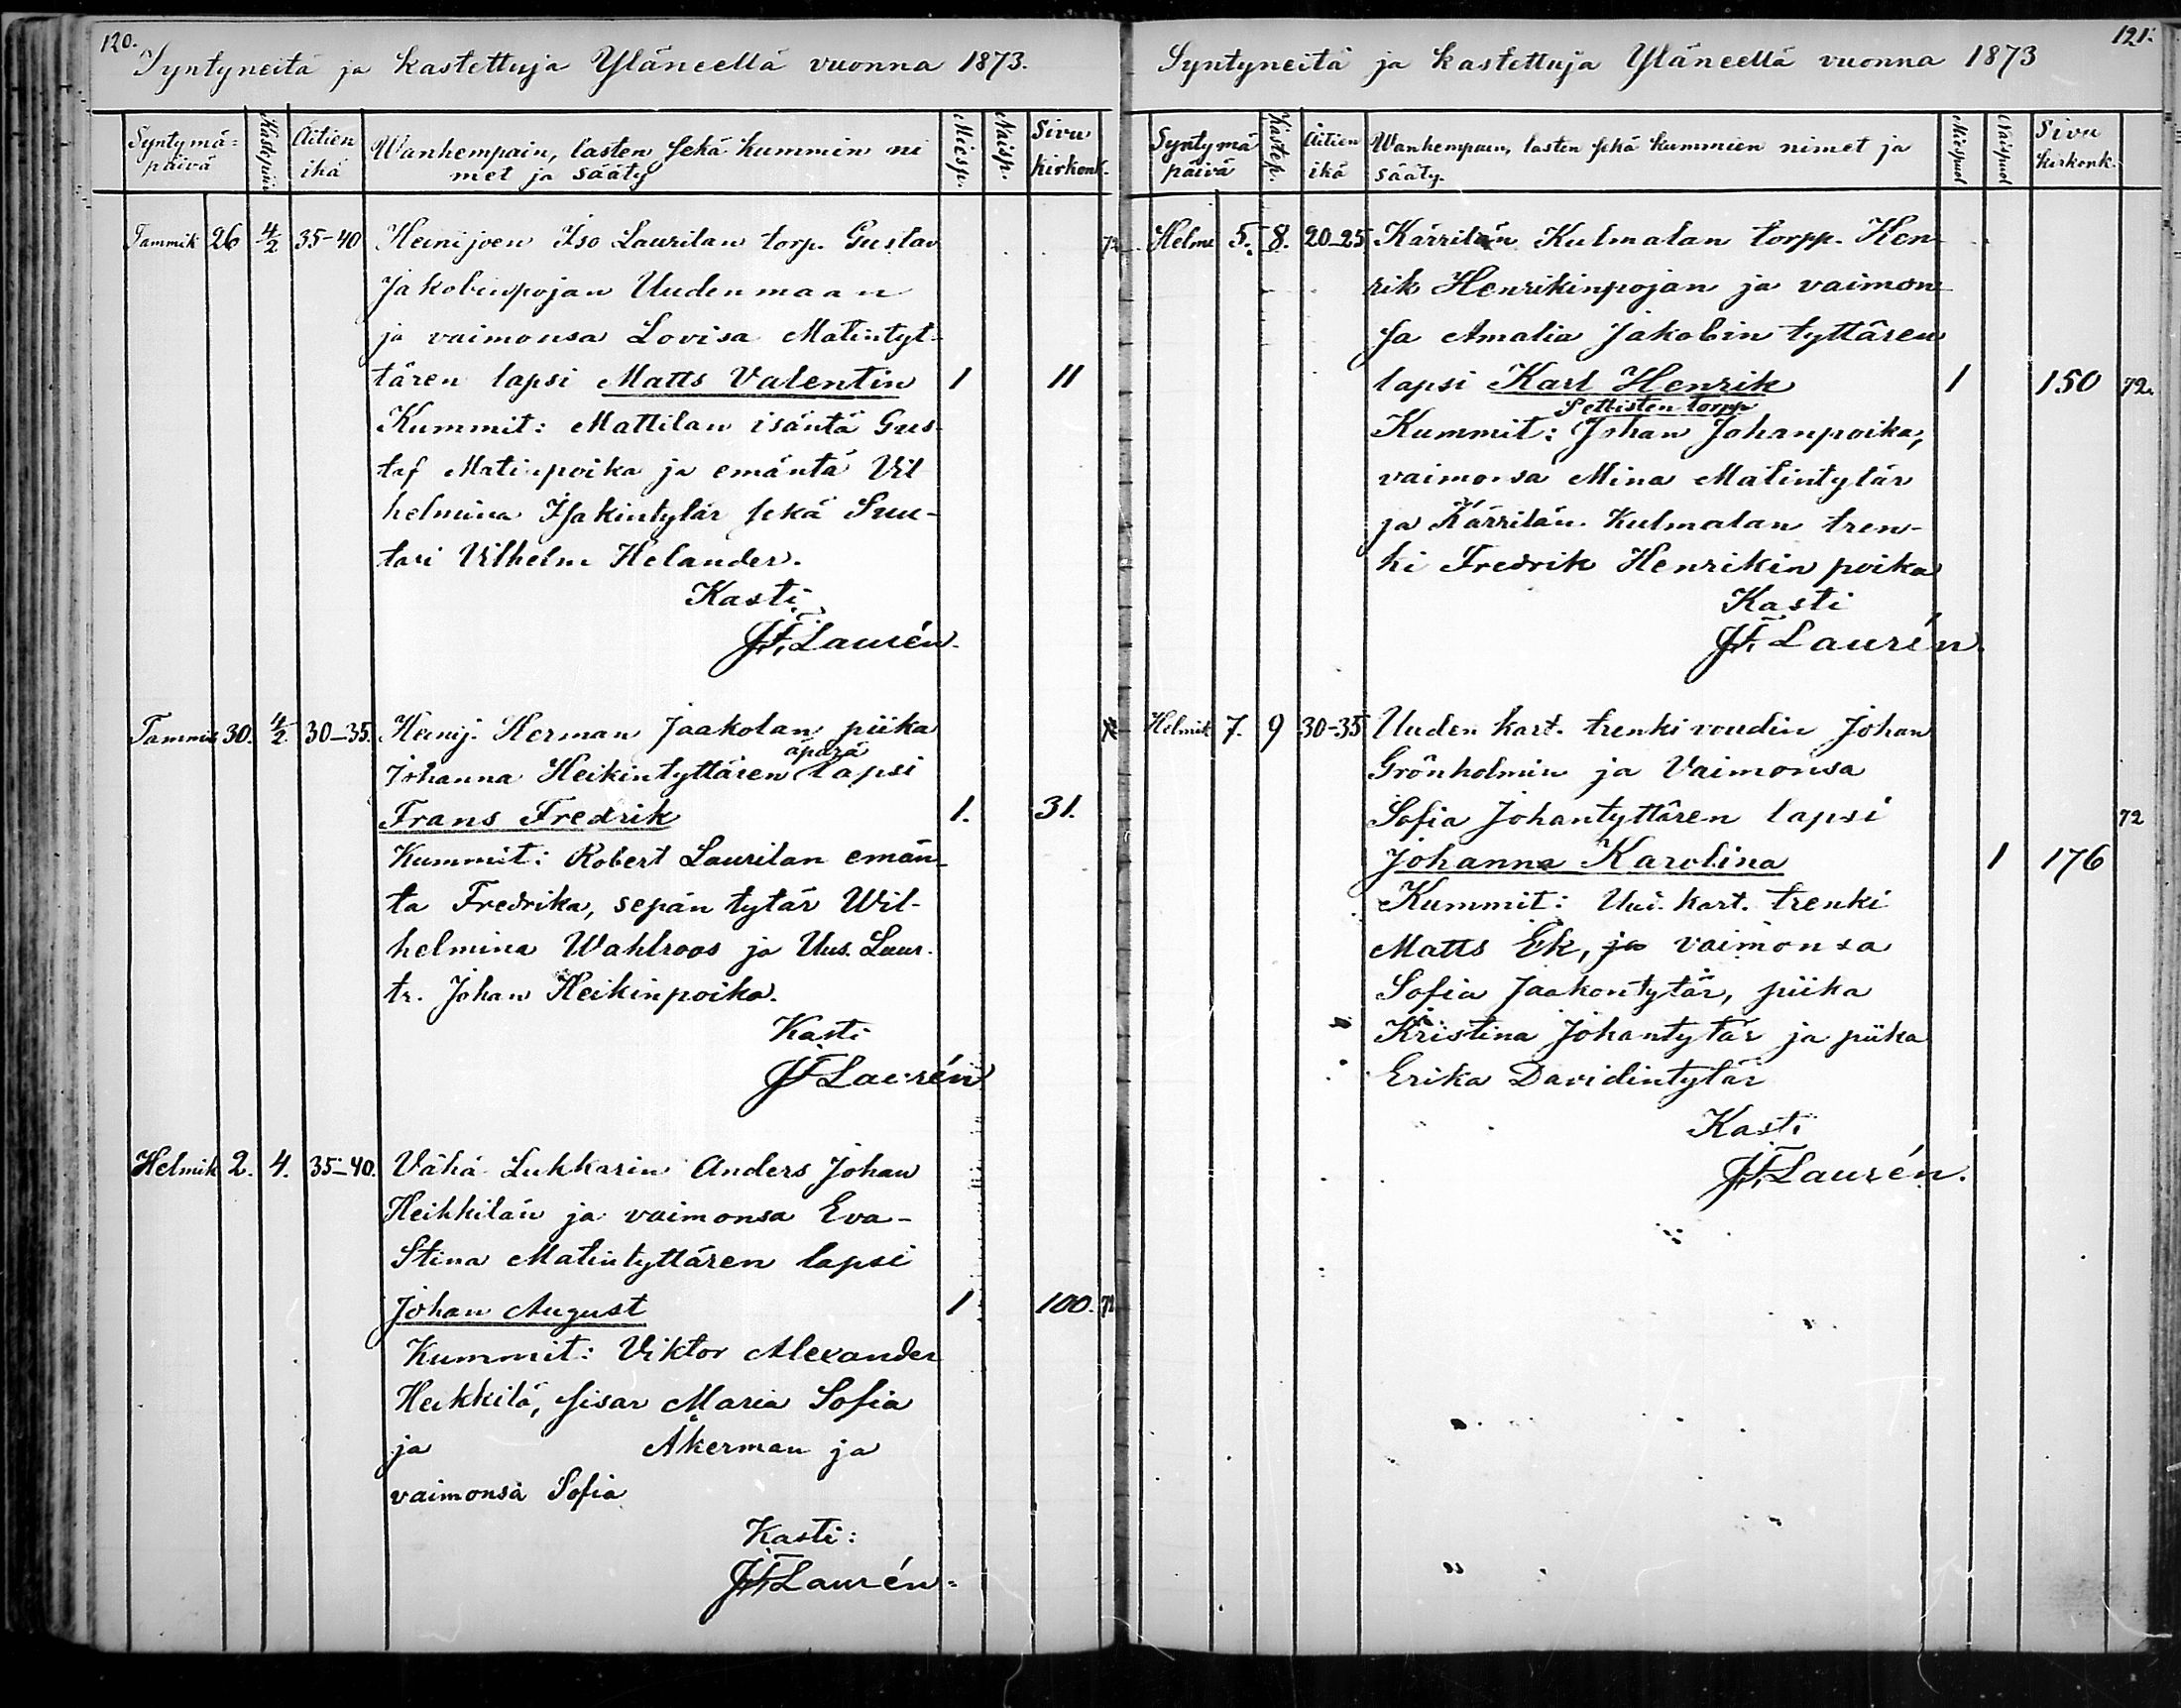 120.
Syntyneitä ja kastettuja Yläneellä vuonna 1873.
Syntymä=päivä Kastepäivä Äitien ikä Wanhempain, lasten sekä kummin nimet ja sääty Miesp. Naisp. Sivu kirkonk.
Tammik 26 4/2 35-40 Heinijoen Iso Laurilan torp. Gustav
Jakobinpojan Uudenmaan
ja vaimonsa Lovisa Matintyt-
tären lapsi Matts Valentin 1 11
Kummit: Mattilan isäntä Gus-
taf Matinpoika ja emäntä Vil
helmina Isakintytär sekä Suu-
tari Vilhelm Helander.
Kasti
J.F. Laurén.
Tammik 30. 4/2 30-35. Heinij. Herman Jaakolan piika
äpärä
Johanna Heikintyttären lapsi
Frans Fredrik 1. 31.
Kummit: Robert Laurilan emän-
ta Fredrika, sepän tytär Wil-
helmina Wahlroos ja Uus. Laur.
tr. Johan Heikinpoika.
Kasti
JF Laurén
Helmik 2. 4. 35-40. Vähä Luhkarin Anders Johan
Heikkilän ja vaimonsa Eva-
Stina Matintyttären lapsi
Johan August 1 100. 72
Kummit: Viktor Alexander
Heikkilä, sisar Maria Sofia
ja Åkerman ja
vaimonsa Sofia
Kasti:
JF Laurén.
121.
Syntyneitä ja kastettuja Yläneellä vuonna 1873
Syntymä päivä Kastep. Äitien ikä Wanhempain, lasten sekä kummien nimet ja sääty. Miespuol Naispuol Sivu kirkonk.
72 Helmi 5. 8. 20-25 Kärrilän Kulmalan torpp. Hen-
rik Henrikinpojan ja vaimon-
sa Amalia Jakobin tyttären
lapsi Karl Henrik 1 150 72.
Pettisten torpp
Kummit: Johan Johanpoika,
vaimonsa Mina Matintytär
ja Kärrilän Kulmalan tren-
ki Fredrik Henrikin poika
Kasti
J.F. Laurén.
Helmik 7. 9 30-35 Uuden kart. trenkivoudin Johan
Grönholmin ja Vaimonsa
Sofia Johantyttären lapsi 72
Johanna Karolina 1 176
Kummit: Uud. kart. trenki
Matts Ek, ja vaimonsa
Sofia Jaakontytär, piika
Kristina Johantytär ja piika
Erika Davidintytär
Kasti
J.F. Laurén.